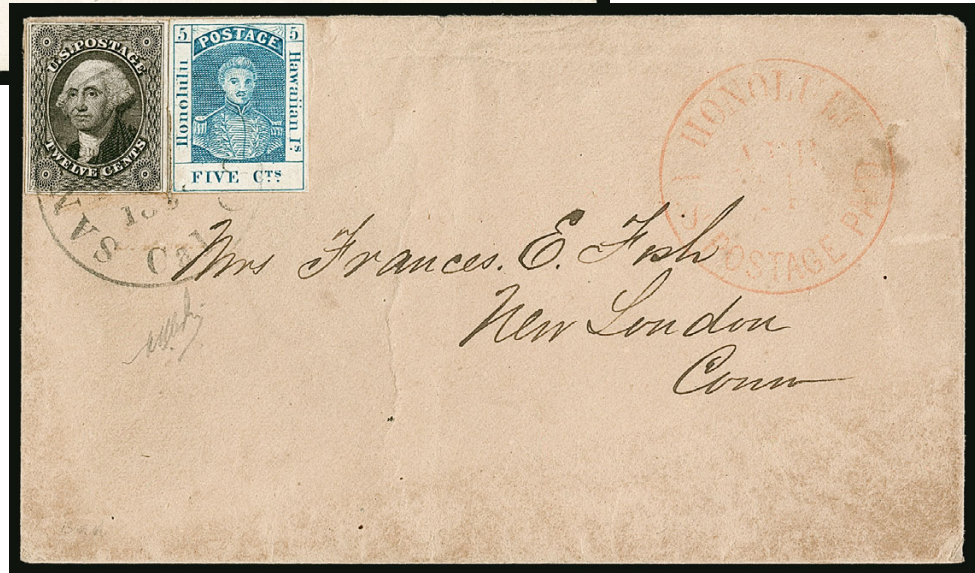 U.S. POSTAGE
TWELVE CENTS
5 POSTAGE 5
Honolulu
Hawaiian Is.
FIVE CTS
SAN
Cal
HONOLULU
U.S. POSTAGE PAID
Mrs Frances. E. Fish
New London
Conn